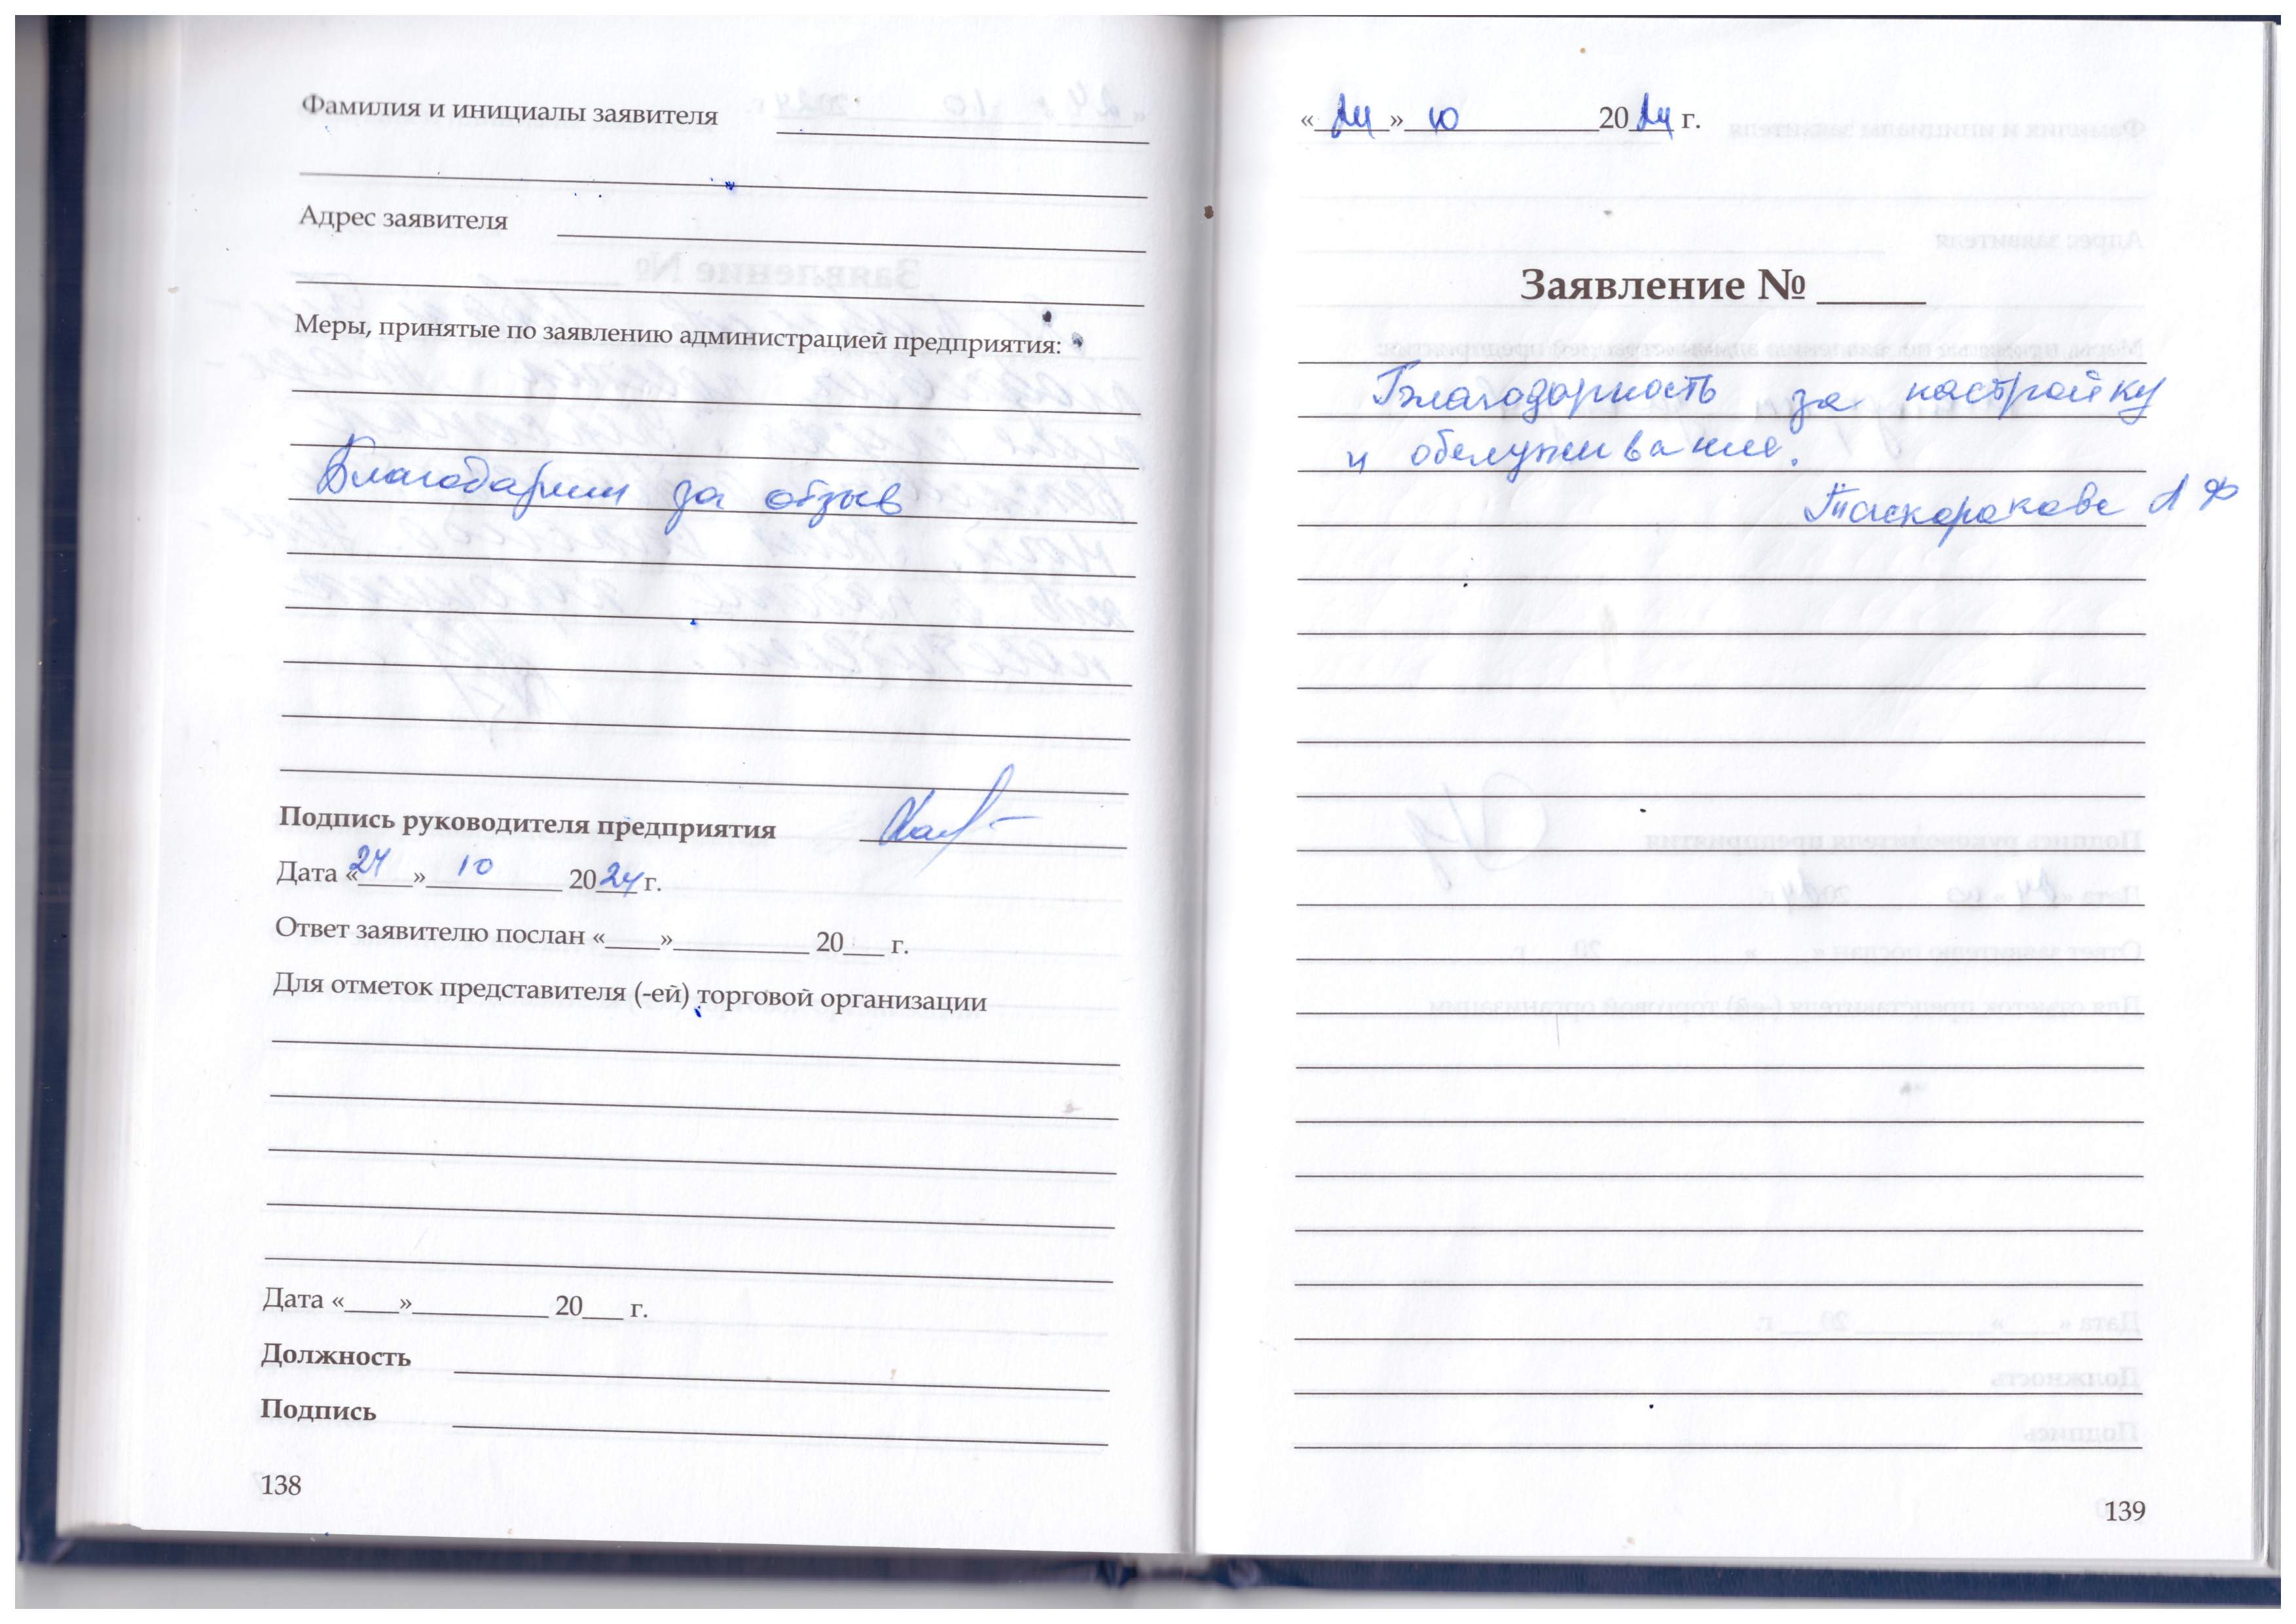 Фамилия и инициалы заявителя
Адрес заявителя
Меры, принятые по заявлению администрацией предприятия:
Благодарим за отзыв
Подпись руководителя предприятия
Дата «24» 10 2024 г.
Ответ заявителю послан «____»__________ 20___ г.
Для отметок представителя (-ей) торговой организации
Дата «____»__________ 20___ г.
Должность
Подпись
138
«24» 10 2024 г.
Заявление № _____
Благодарность за настройку
и обслуживание.
139